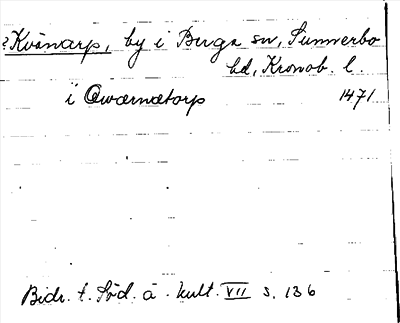 ?Kvänarp, by i Berga sn, Sunnerbo
hd, Kronob. l.
i Qwærnætorp 1471
Bidr. t. Söd. ä. kult. VII s. 136